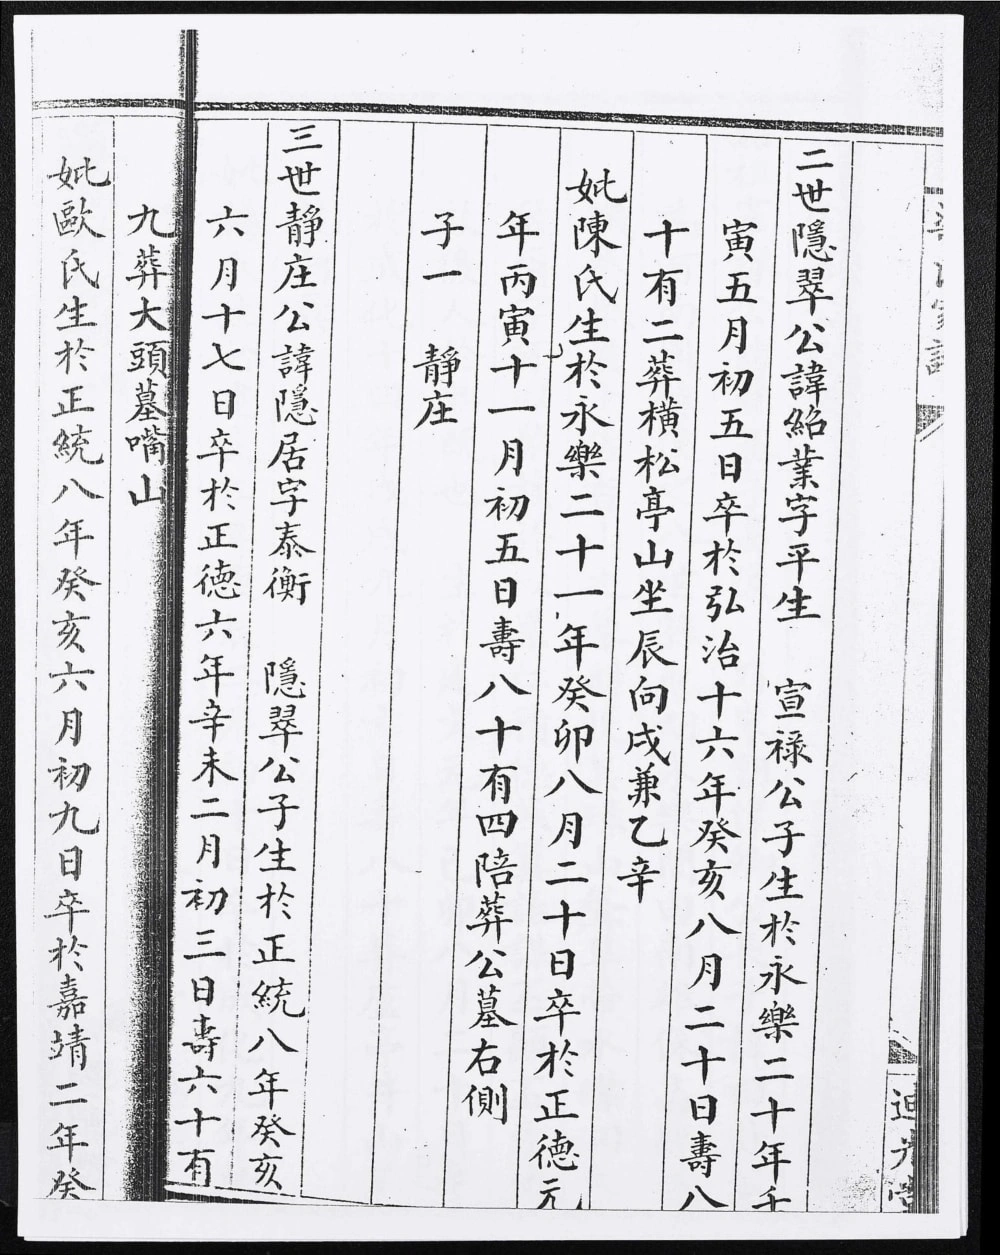 二世隱翠公諱紹業字平生　宣祿公子生於永樂二十年壬
寅五月初五日卒於弘治十六年癸亥八月二十日壽八
十有二葬橫松亭山坐辰向戌兼乙辛
妣陳氏生於永樂二十一年癸卯八月二十日卒於正德元
年丙寅十一月初五日壽八十有四陪葬公墓右側
子一　靜庄
三世靜庄公諱隱居字泰衡　隱翠公子生於正統八年癸亥
六月十七日卒於正德六年辛未二月初三日壽六十有
九葬大頭墓嘴山
妣歐氏生於正統八年癸亥六月初九日卒於嘉靖二年癸